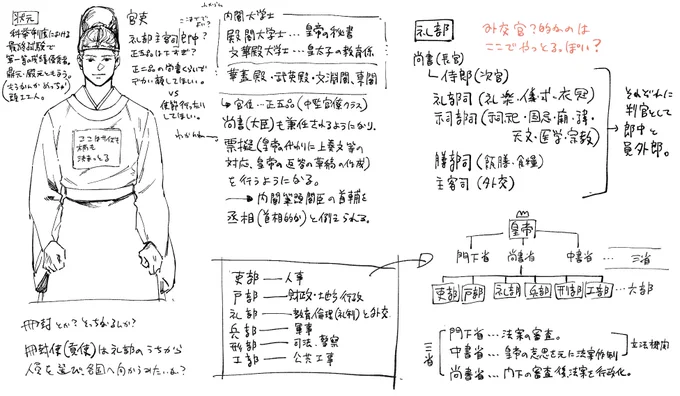 状元
科挙制度における
最終試験で
第一等の成績優秀者。
鼎元・殿元ともよぶ。
超エリート。
ここは官位で
柄も
決まっとる
官吏
礼部主客司郎中?
正五品は下すぎ?
正二品の尚書くらいで
デカい顔してほしい。
VS
佐野郎だったり
してほしい。
わかんね
内閣大学士
殿閣大学士…皇帝の秘書
文華殿大学士…皇太子の教育係
華蓋殿・武英殿・文淵閣、東閣
↳官位…正五品(中堅官僚クラス)
尚書(大臣)も兼任されるようになり、
票擬(皇帝の代わりに上奏文等の
対応、皇帝の返答の草稿の作成)
を行うようになる。
→内閣筆頭閣臣の首輔を
丞相(首相的な)と例えられる。
礼部
外交官?的なのは
ここでやっとるっぽい?
尚書(長官)
↳侍郎(次官)
礼部司(礼楽・儀式・衣冠)
祠部司(祠祀・国忌・廟・諱・
天文・医学・宗教)
膳部司(飯膳・食糧)
主客司(外交)
それぞれに
判官として
郎中と
員外郎。
皇帝
門下省 尚書省 中書省…三省
吏部 戸部 礼部 兵部 刑部 工部…六部
吏部―人事
戸部―財政・地方行政
礼部―教育・倫理(礼制)と外交
兵部―軍事
刑部―司法・警察
工部―公共工事
三省
門下省…法案の審査。
中書省…皇帝の意思を元に法案作制
尚書省…門下の審査後、法案を行政化。
立法機関
冊封とか?どっちがするんか?
冊封使(貢使)は礼部のうちから
人を選び各国へ向かうみたいな?